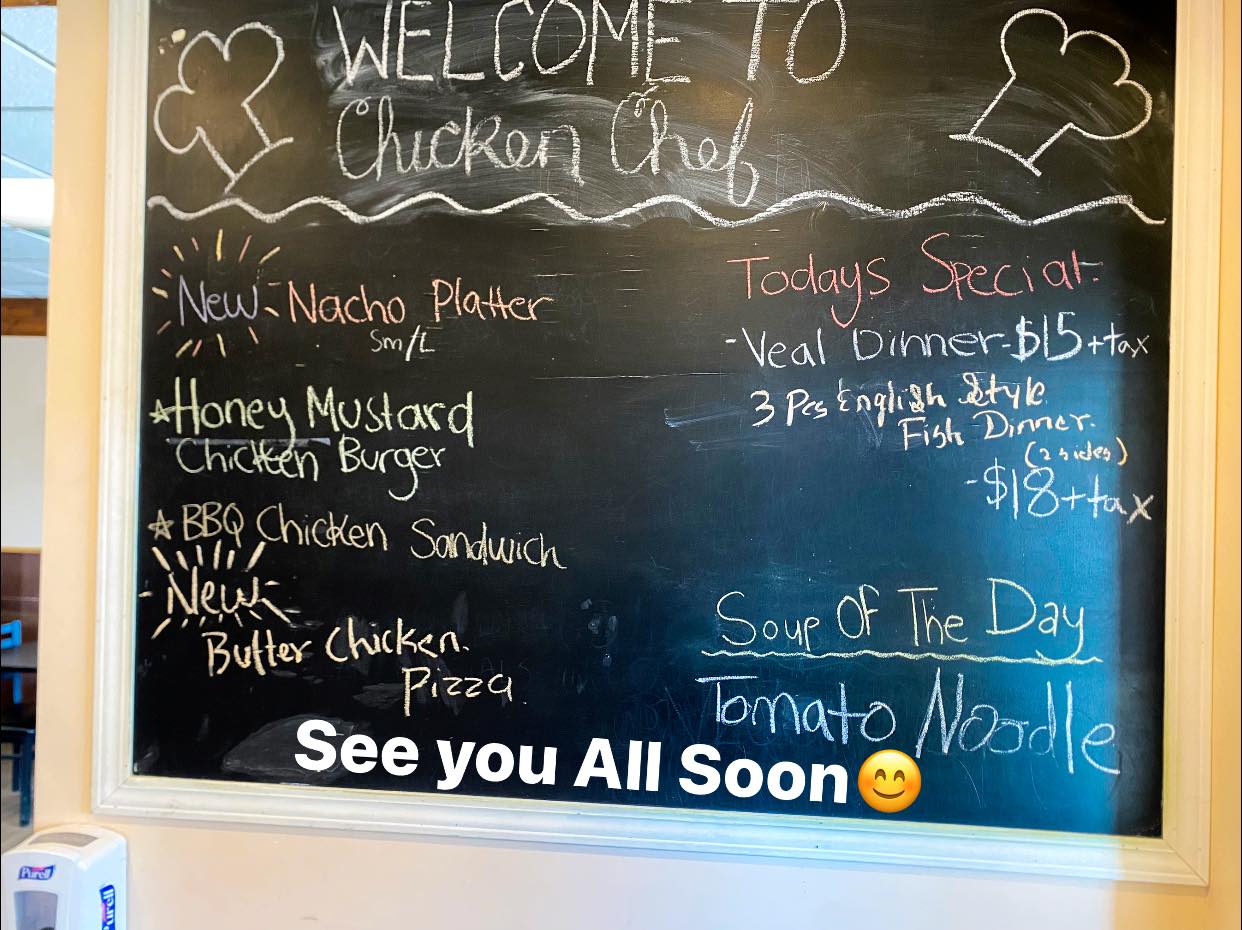 WELCOME TO
Chicken Chef
New Nacho Platter
Sm/L
Honey Mustard
Chicken Burger
BBQ Chicken Sandwich
New
Butter Chicken.
Pizza
Todays Special:
-Veal Dinner-$15+tax
3 Pcs English Style
Fish Dinner.
(2 sides)
-$18+tax
Soup Of The Day
Tomato Noodle
See you All Soon😊
Purell
Purell